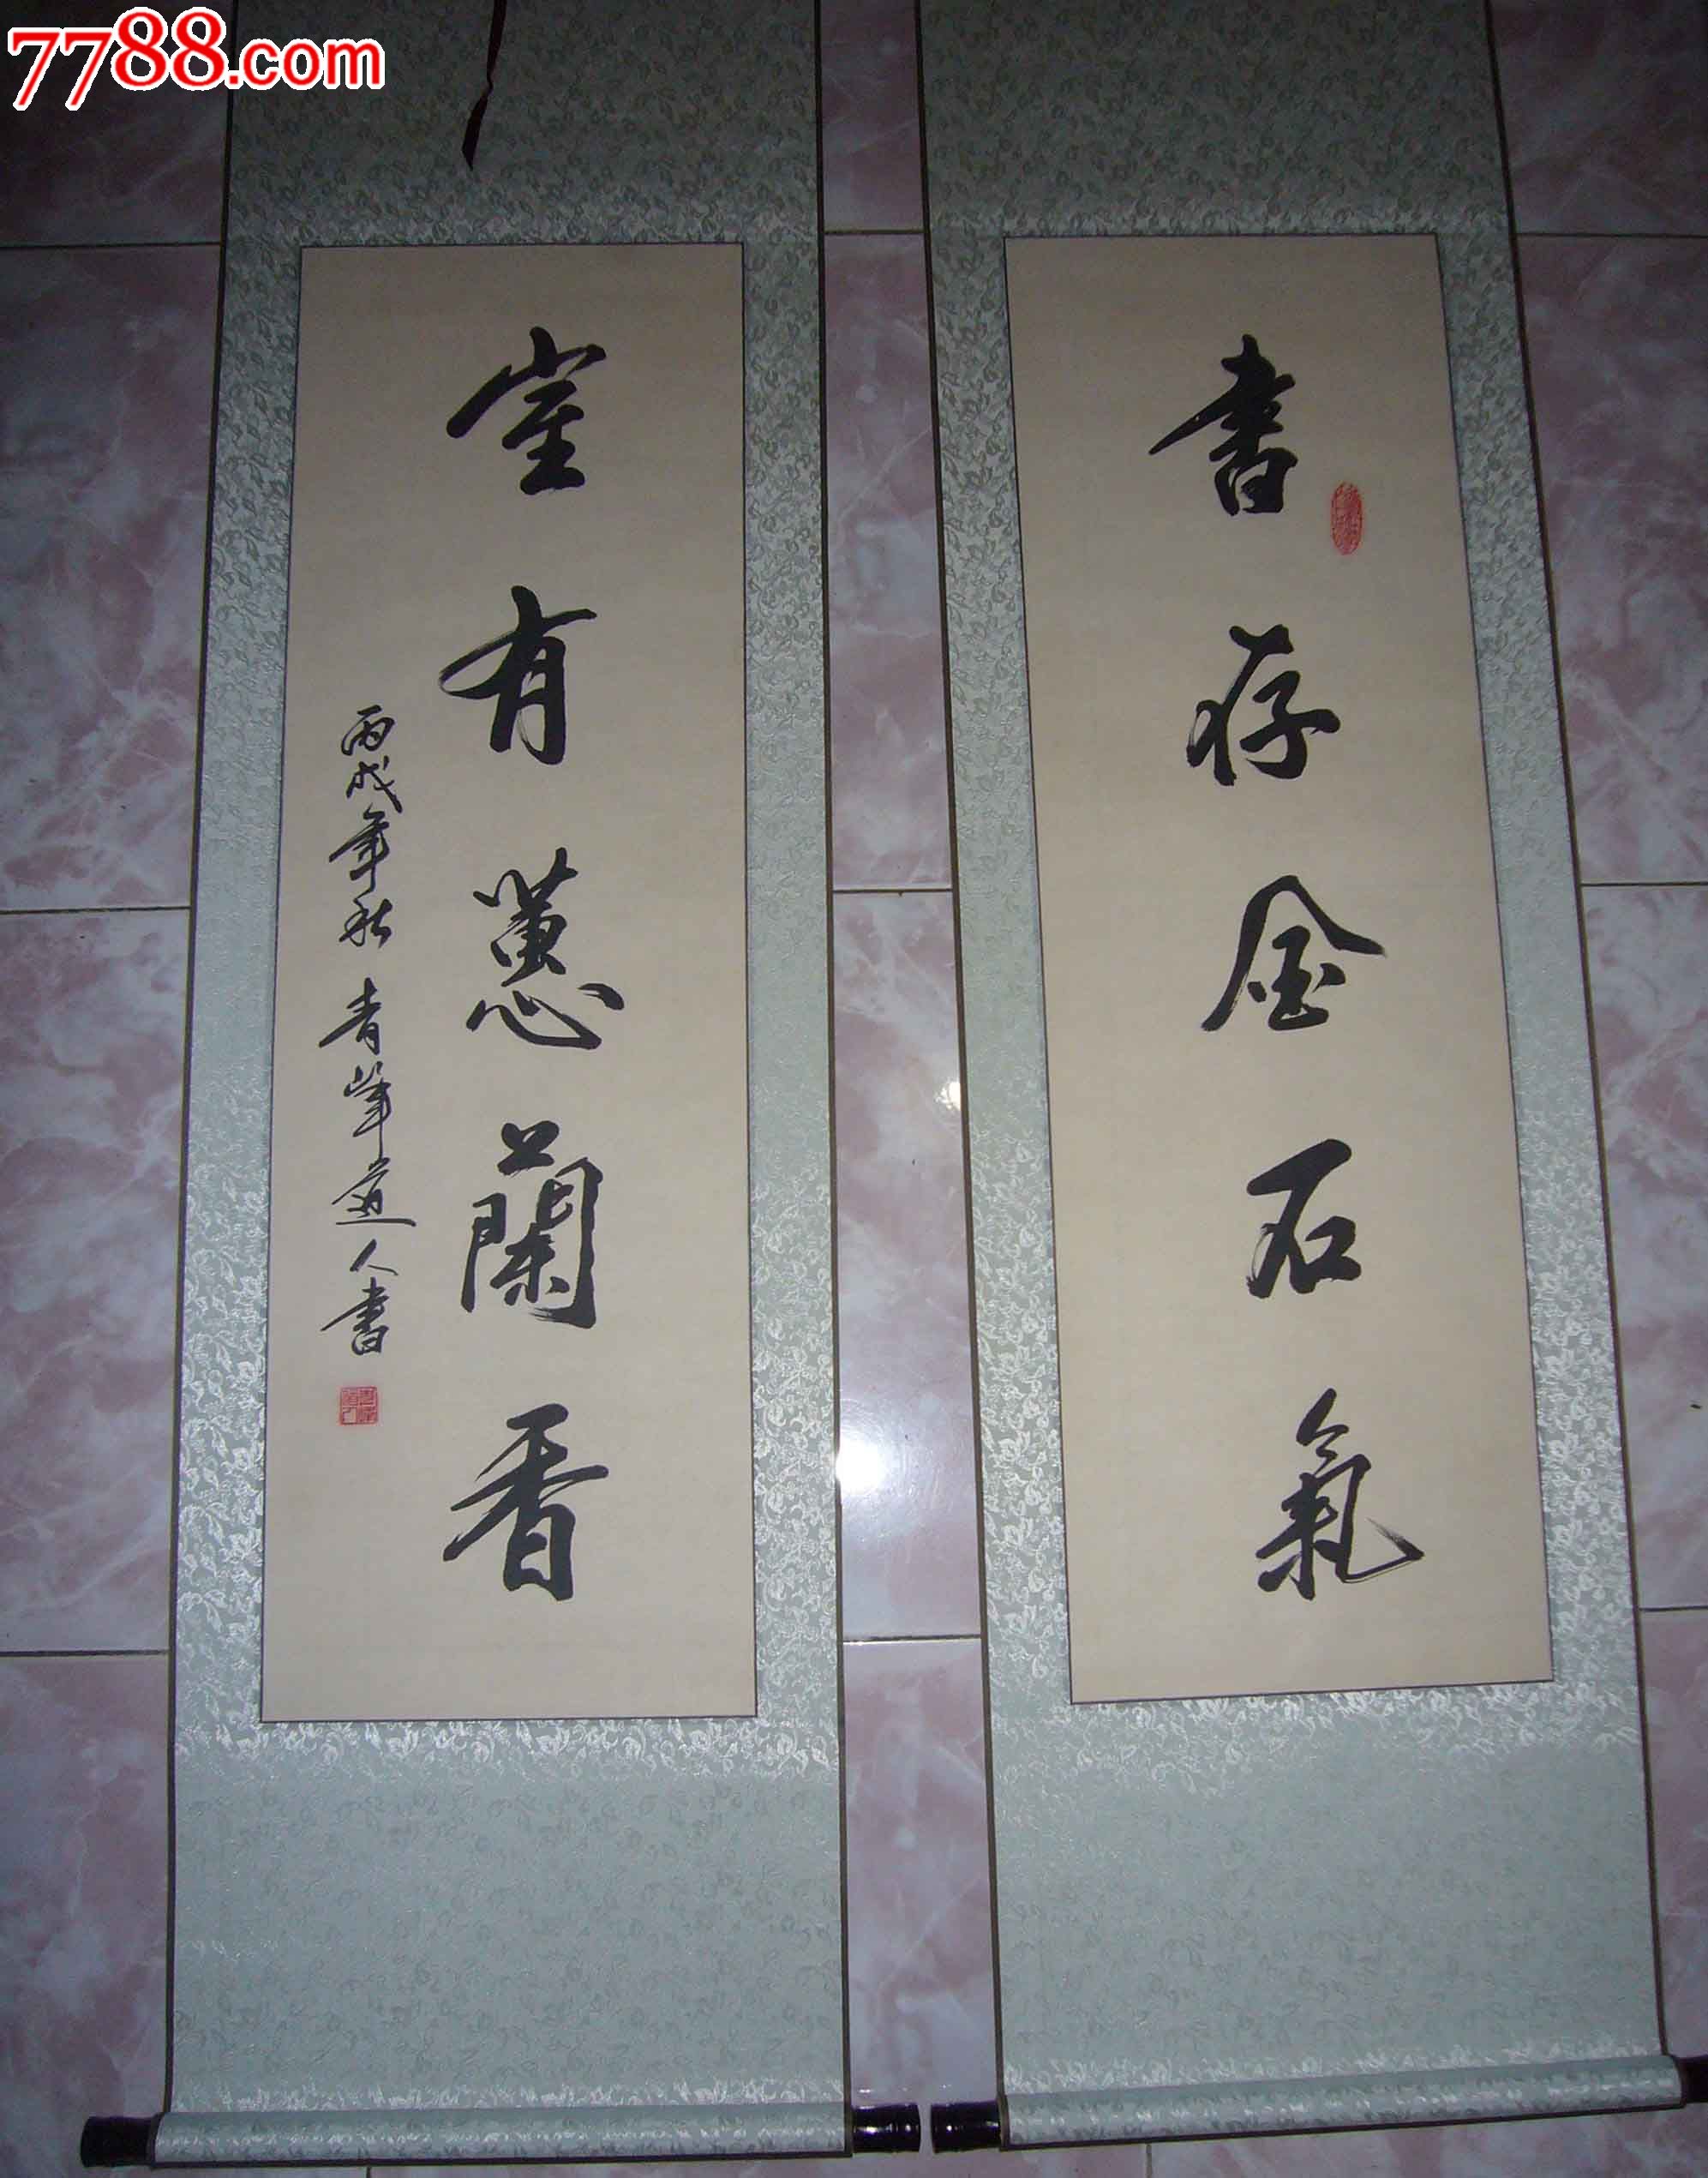 7788.com
書存金石氣
室有蕙蘭香
丙戌年秋 青峰道人書